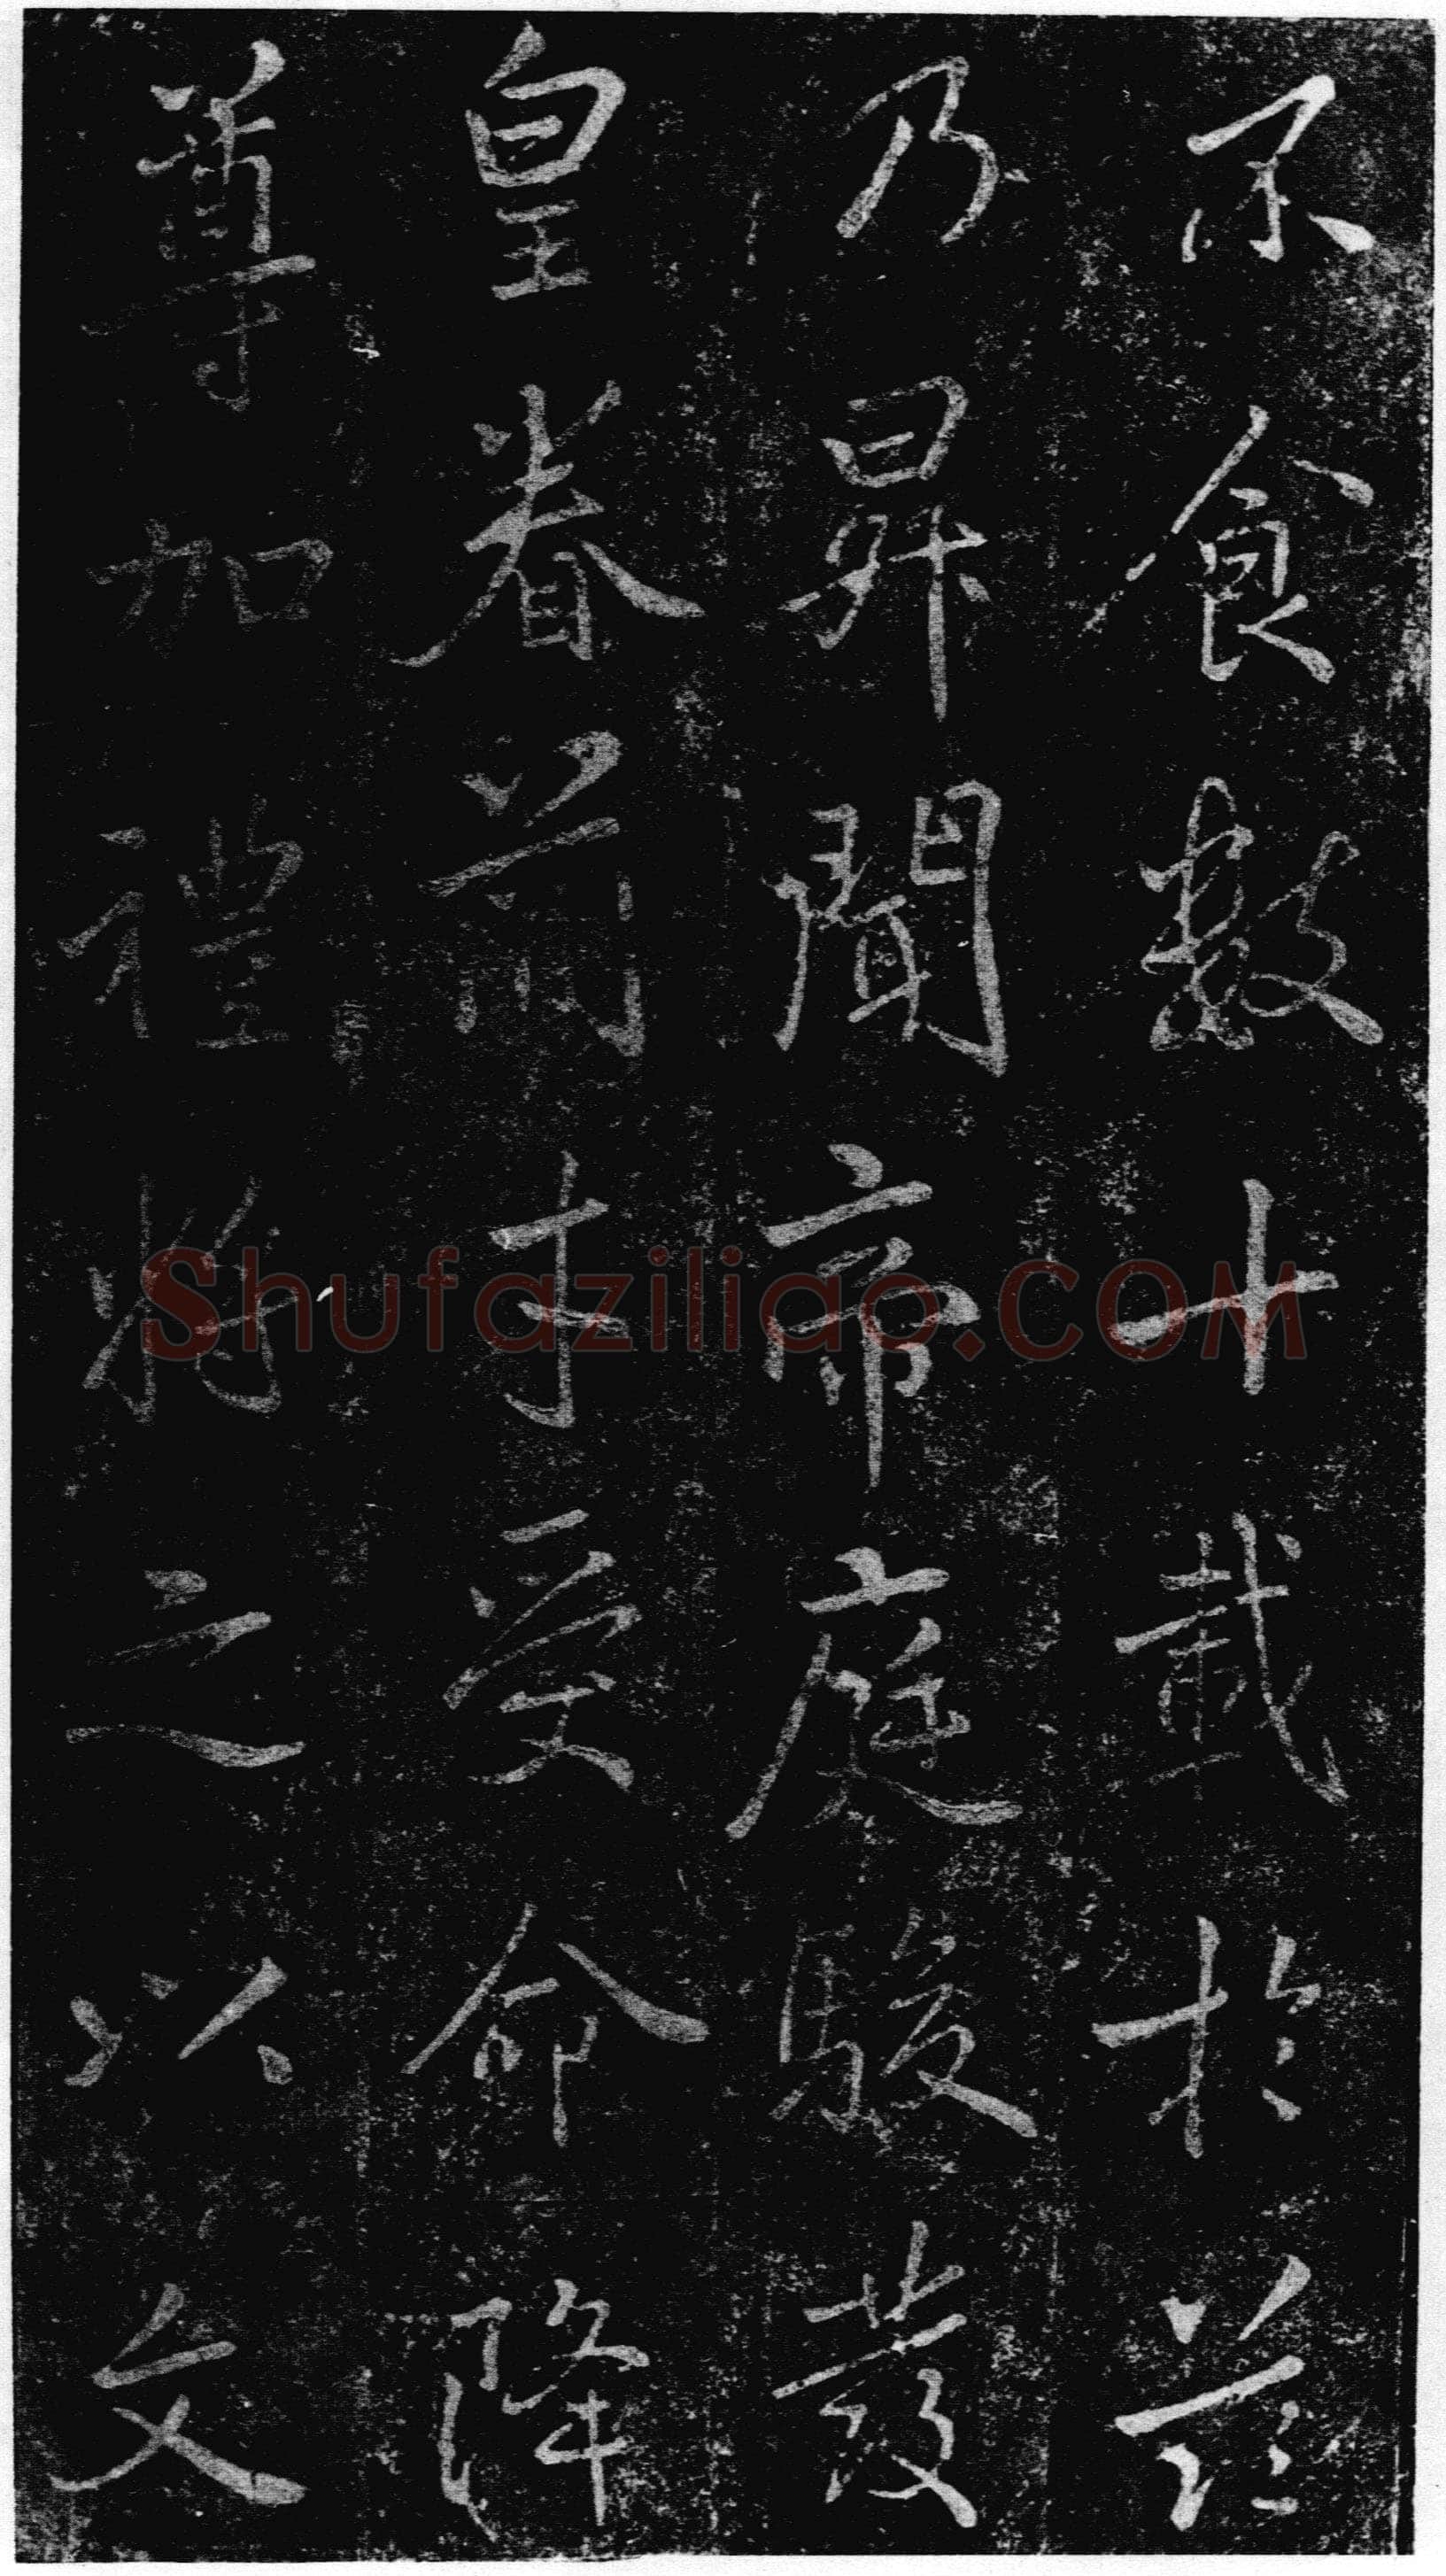 不食數十載於茲
乃昇聞帝庭駿發
皇眷前才受命降
尊加禮將之以文
Shufaziliao.COM